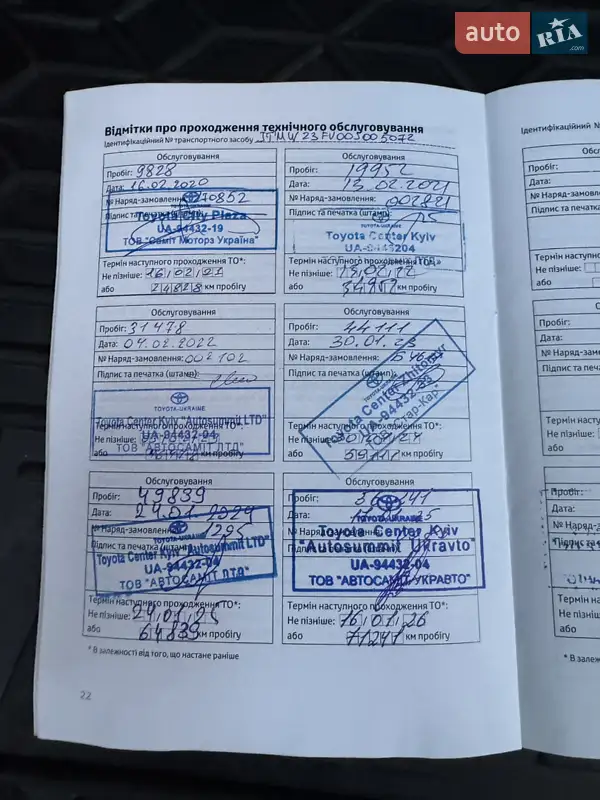 auto RIA .com
Відмітки про проходження технічного обслуговування
Ідентифікаційний № транспортного засобу JTMW23FV005005072
Обслуговування
Пробіг: 9828
Дата: 16.02.2020
№ Наряд-замовлення: 270852
Підпис та
Toyota City Plaza
UA-94432-19
ТОВ "Саміт Моторз Україна"
Термін наступного проходження ТО*:
Не пізніше: 16.02.21
або 24828 км пробігу
Обслуговування
Пробіг: 19952
Дата: 15.02.2021
№ Наряд-замовлення: 002821
Підпис та печатка (штамп)
TOYOTA-UKRAINE
Toyota Center Kyiv
Термін наступного проходження ТО*:
Не пізніше: 15.02.22
або 34952 км пробігу
Обслуговування
Пробіг: 31478
Дата: 04.02.2022
№ Наряд-замовлення: 002102
Підпис та печатка (штамп):
TOYOTA-UKRAINE
Toyota Center Kyiv "Autosummit LTD"
UA-94432-04
ТОВ "АВТОСАМІТ ЛТД"
Термін наступного проходження ТО*:
Не пізніше:
або км пробігу
Обслуговування
Пробіг: 44111
Дата: 30.01.23
№ Наряд-замовлення:
Підпис та печатка (штамп)
Toyota Center Zhitomyr
Термін наступного проходження ТО*:
Не пізніше:
або 59111 км пробігу
Обслуговування
Пробіг: 49839
Дата: 24.01.2024
№ Наряд-замовлення: 1295
Підпис та печатка (штамп)
TOYOTA-UKRAINE
Toyota Center Kyiv "Autosummit LTD"
UA-94432-04
ТОВ "АВТОСАМІТ ЛТД"
Термін наступного проходження ТО*:
Не пізніше: 24.01.25
або 64839 км пробігу
Обслуговування
Пробіг:
Дата:
№ Наряд-
Підпис
TOYOTA-UKRAINE
Toyota Center Kyiv
"Autosummit Ukravto"
UA-94432-04
ТОВ "АВТОСАМІТ-УКРАВТО"
Термін наступного проходження ТО*:
Не пізніше: 16.01.26
або 71241 км пробігу
* В залежності від того, що настане раніше
22
Ідентифікаційний № тра
Пробіг:
Дата:
№ Наряд-замовлен
Підпис та печатка
Термін наступног
Не пізніше:
або
Пробіг:
Дата:
№ Наряд-замовл
Підпис та печат
Термін наступн
Не пізніше:
або
Пробіг:
Дата:
№ Наряд-з
Підпис та
Термін наступ
Не пізніше:
або
* В залежн